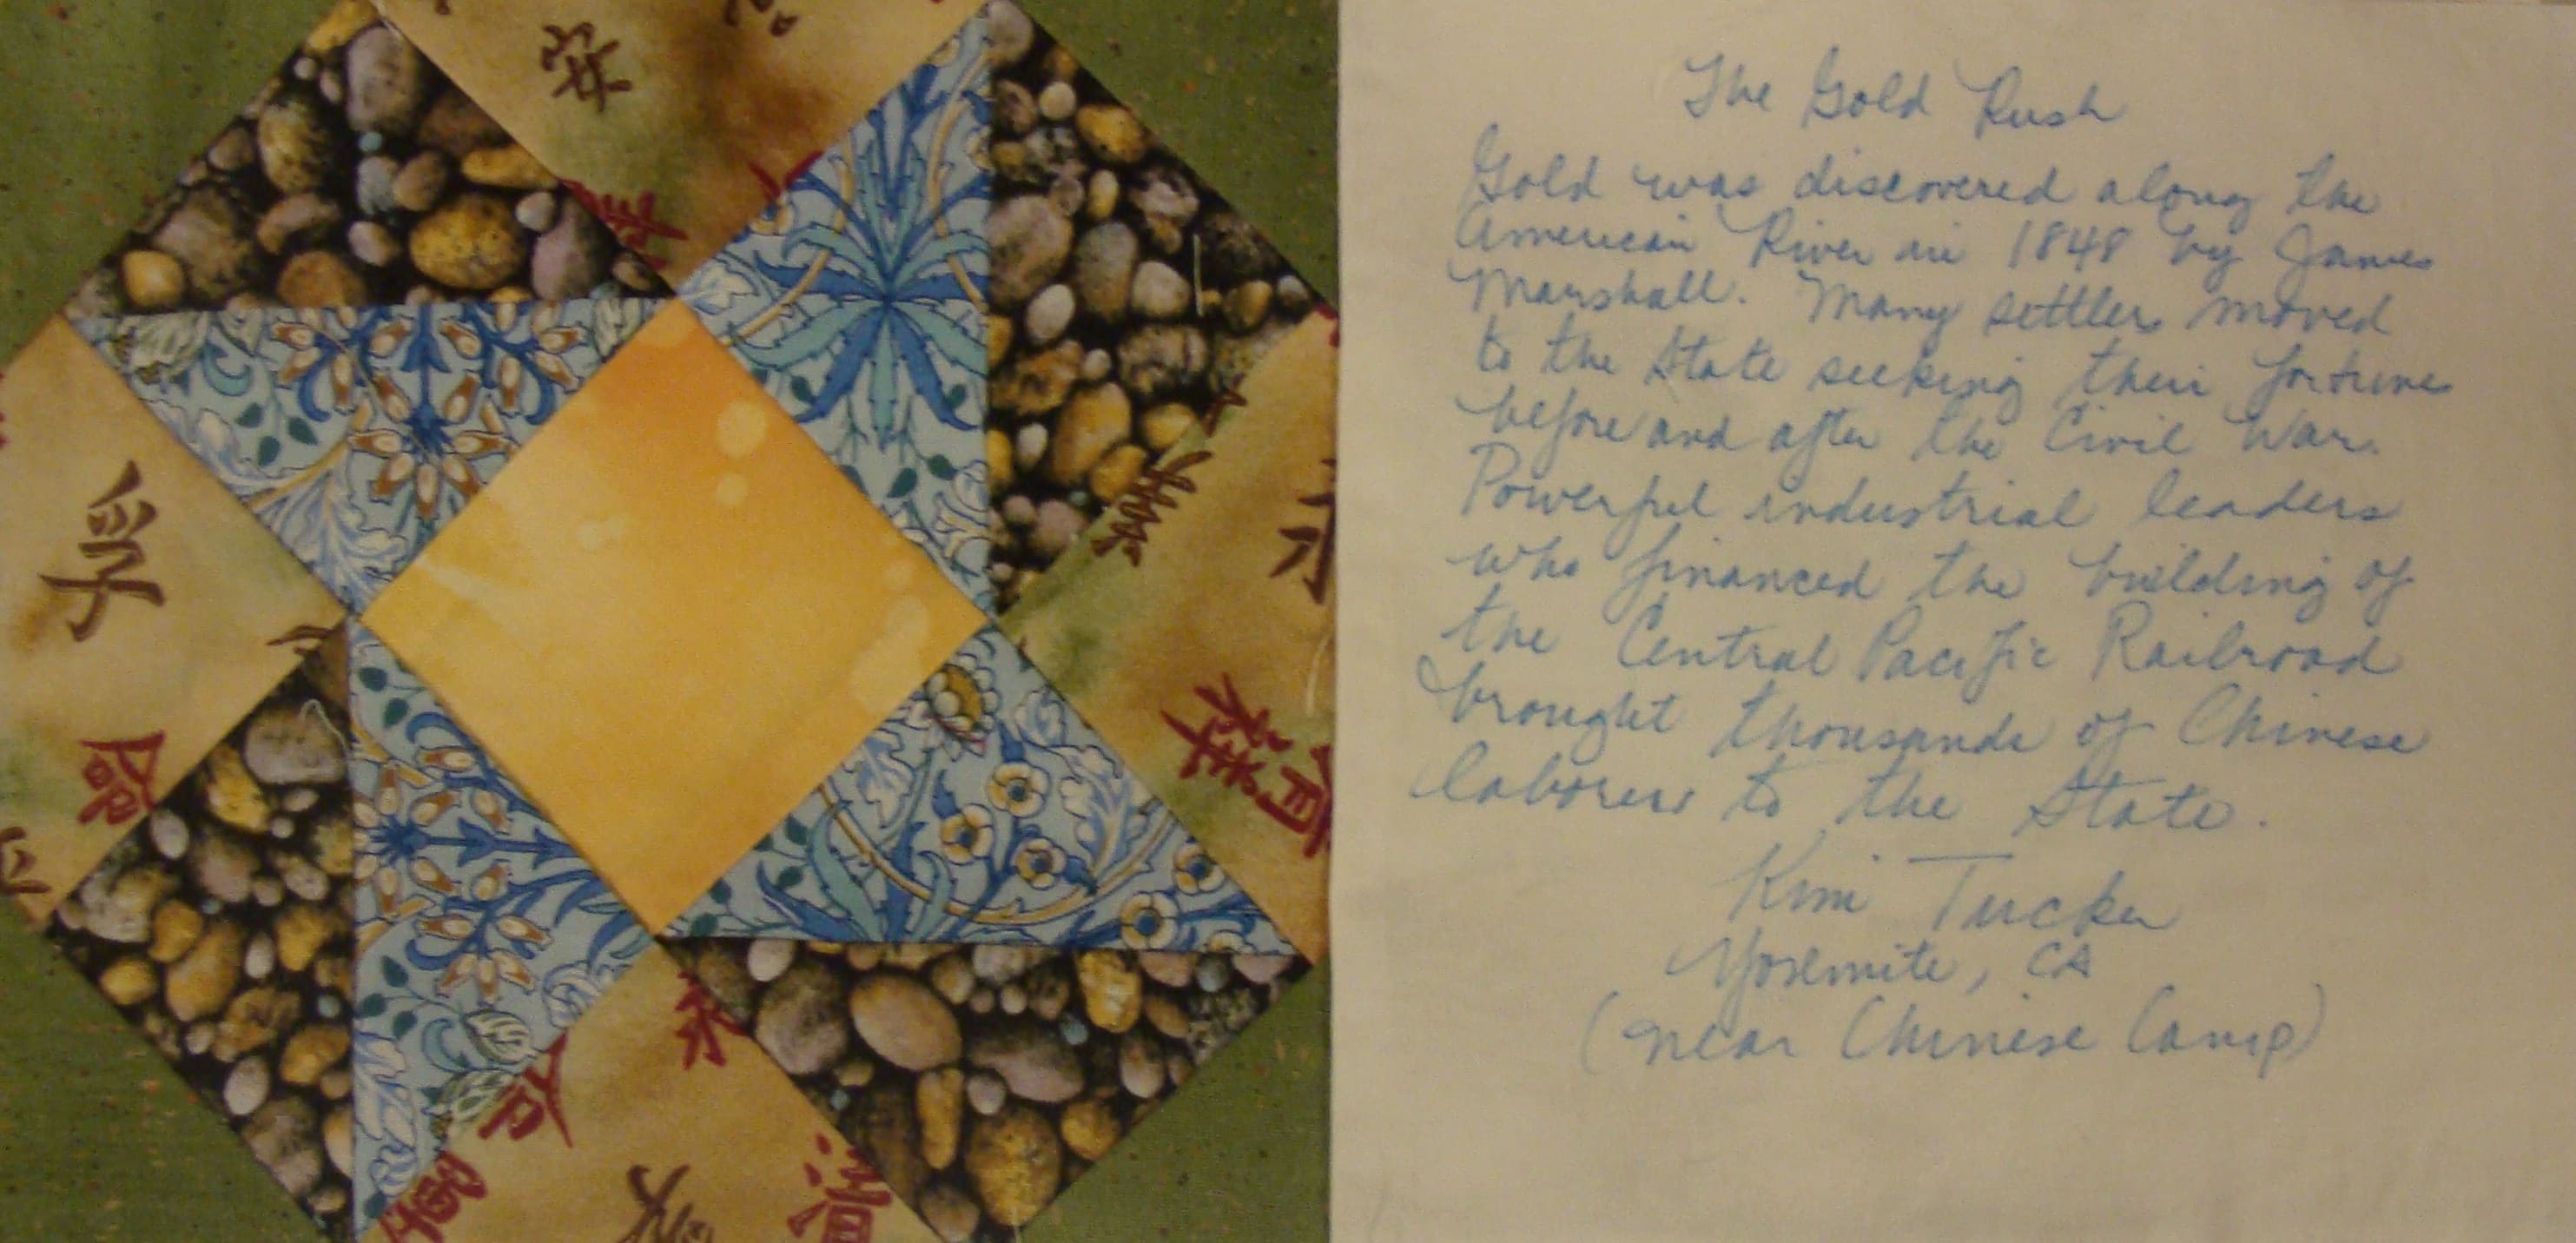 安
孚
命
永
祥
The Gold Rush
Gold was discovered along the
American River in 1848 by James
Marshall. Many settlers moved
to the State seeking their fortunes
before and after the Civil War.
Powerful industrial leaders
who financed the building of
the Central Pacific Railroad
brought thousands of Chinese
laborers to the State.
Kim Tucker
Yosemite, CA
(near Chinese Camp)